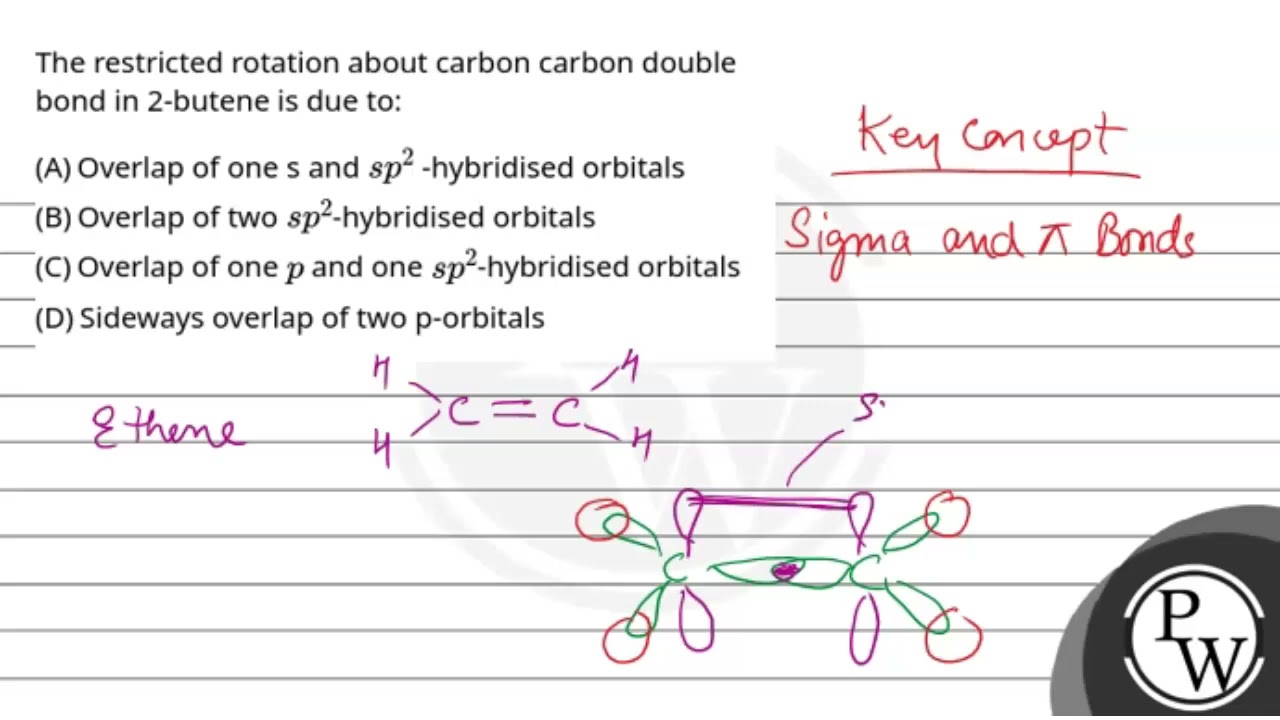 The restricted rotation about carbon carbon double
bond in 2-butene is due to:
(A) Overlap of one s and sp² -hybridised orbitals
(B) Overlap of two sp²-hybridised orbitals
(C) Overlap of one p and one sp²-hybridised orbitals
(D) Sideways overlap of two p-orbitals
Key Concept
Sigma and π Bonds
Ethene
H H
C = C
H H
Si
C C
P
W